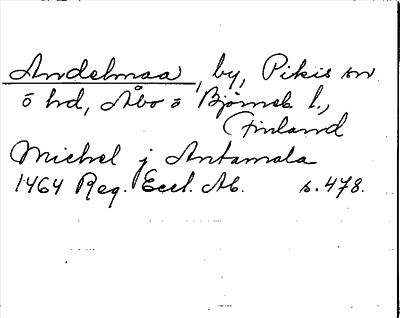 Andelmaa, by, Pikis sn
o hd, Åbo o Björneb l.,
Finland
Michel j Antamala
1464 Reg. Eccl. Ab. s. 478.